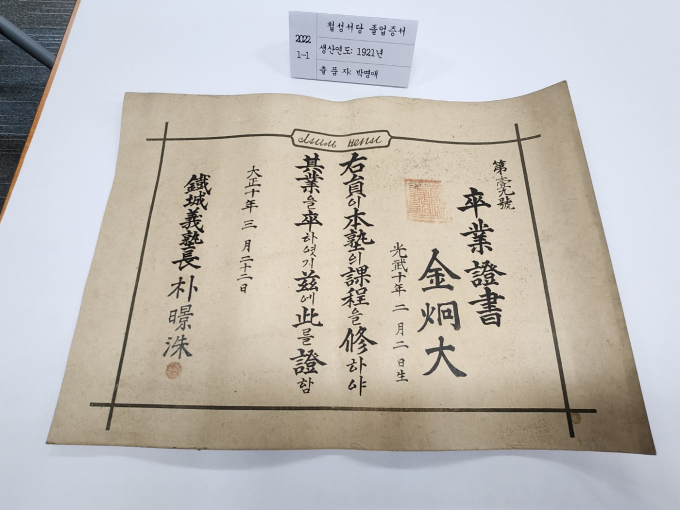 2022
1-1
철성서당 졸업증서
생산연도: 1921년
출 품 자: 박명애
第壹九號
卒業證書
金炯大
光武十年 二月二日生
右員이本塾의課程을修하야
其業을卒하엿기茲에此를證함
大正十年 三月二十二日
鐵城義塾長 朴暻洙